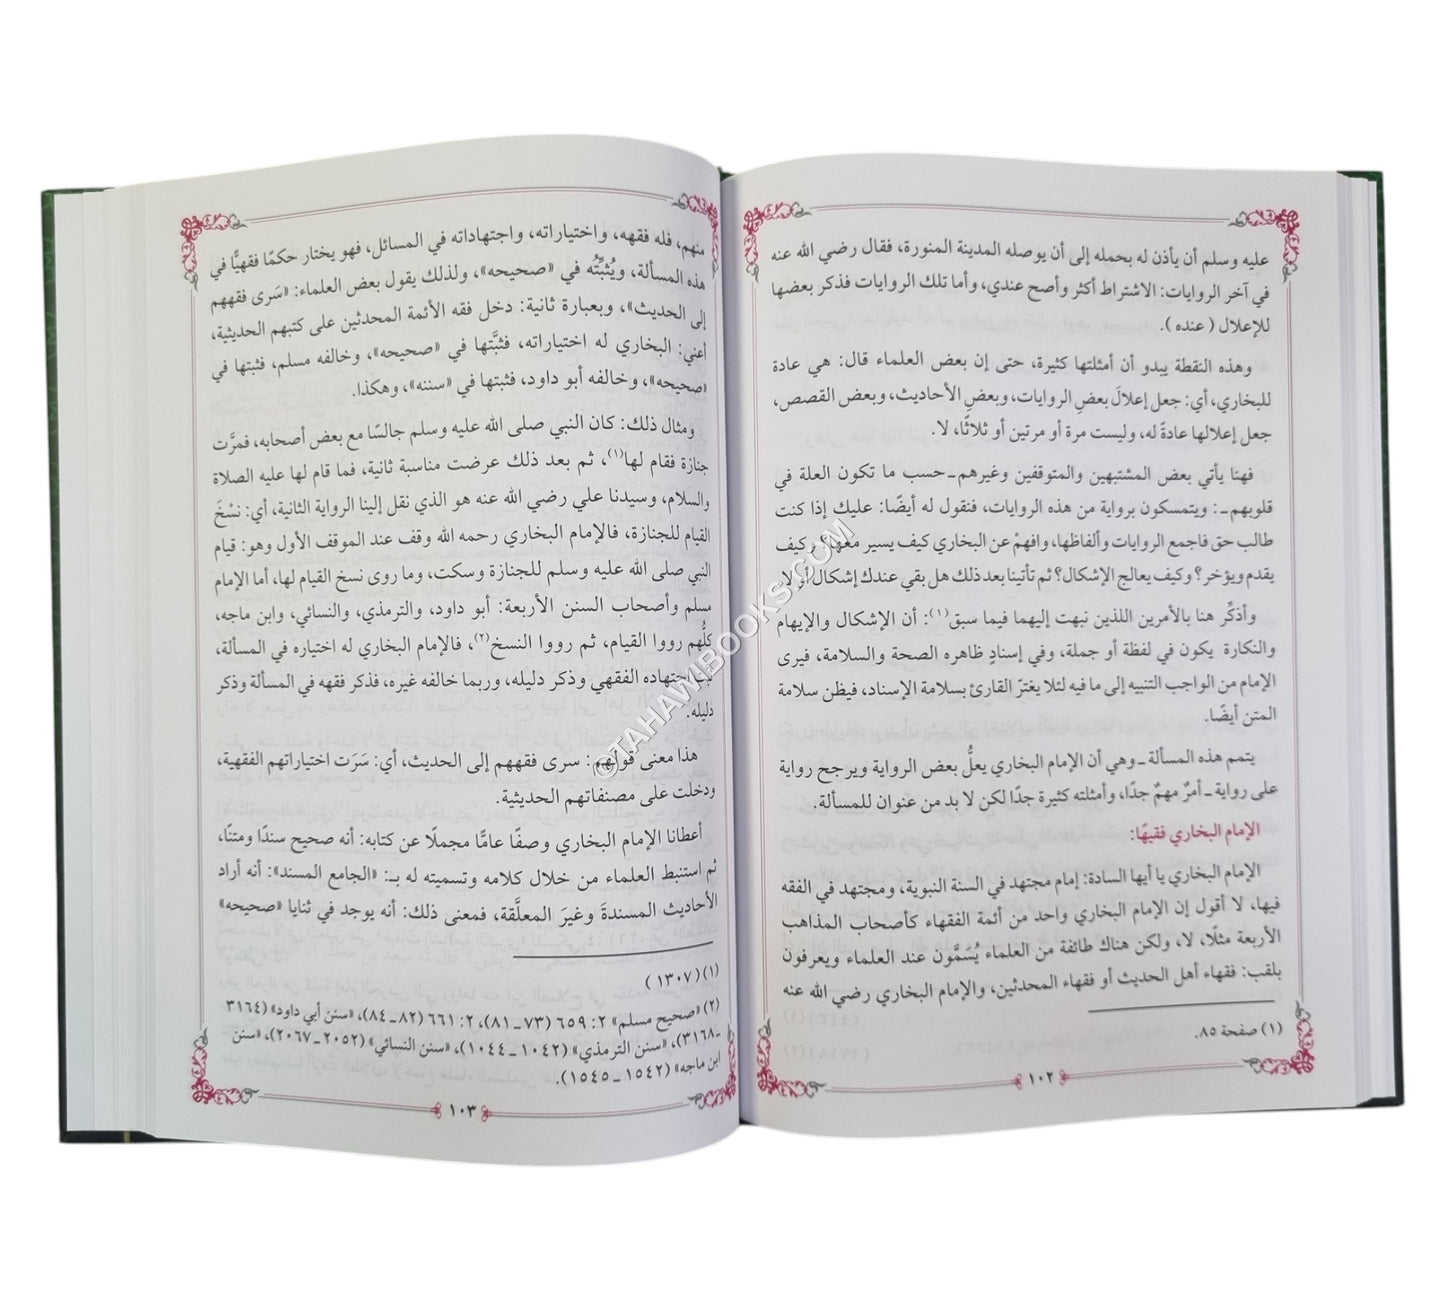 عليه وسلم أن يأذن له بحمله إلى أن يوصله المدينة المنورة، فقال رضي الله عنه
في آخر الروايات: الاشتراط أكثر وأصح عندي، وأما تلك الروايات فذكر بعضها
للإعلال (عنده).
وهذه النقطة يبدو أن أمثلتها كثيرة، حتى إن بعض العلماء قال: هي عادة
للبخاري، أي: جعل إعلالَ بعضِ الروايات، وبعضِ الأحاديث، وبعض القصص،
جعل إعلالها عادةً له، وليست مرة أو مرتين أو ثلاثًا، لا.
فهنا يأتي بعض المشتبهين والمتوقفين وغيرهم ـ حسب ما تكون العلة في
قلوبهم ـ: ويتمسكون برواية من هذه الروايات، فنقول له أيضًا: عليك إذا كنت
طالب حق فاجمع الروايات وألفاظها، وافهمْ عن البخاري كيف يسير معها؟ وكيف
يقدم ويؤخر؟ وكيف يعالج الإشكال؟ ثم تأتينا بعد ذلك هل بقي عندك إشكال أو لا
وأذكِّر هنا بالأمرين اللذين نبهت إليهما فيما سبق(١): أن الإشكال والإيهام
والنكارة يكون في لفظة أو جملة، وفي إسنادٍ ظاهره الصحة والسلامة، فيرى
الإمام من الواجب التنبيه إلى ما فيه لئلا يغترّ القارئ بسلامة الإسناد، فيظن سلامة
المتن أيضًا.
يتمم هذه المسألة ـ وهي أن الإمام البخاري يعلُّ بعض الرواية ويرجح رواية
على رواية ـ أمرٌ مهمٌ جدًا، وأمثلته كثيرة جدًا لكن لا بد من عنوان للمسألة.
الإمام البخاري فقيهًا:
الإمام البخاري يا أيها السادة: إمام مجتهد في السنة النبوية، ومجتهد في الفقه
فيها، لا أقول إن الإمام البخاري واحد من أئمة الفقهاء كأصحاب المذاهب
الأربعة مثلًا، لا، ولكن هناك طائفة من العلماء يُسَمَّون عند العلماء ويعرفون
بلقب: فقهاء أهل الحديث أو فقهاء المحدثين، والإمام البخاري رضي الله عنه
(١) صفحة ٨٥.
١٠٢
منهم، فله فقهه، واختياراته، واجتهاداته في المسائل، فهو يختار حكمًا فقهيًّا في
هذه المسألة، ويُثبِّتُه في «صحيحه»، ولذلك يقول بعض العلماء: «سَرى فقههم
إلى الحديث»، وبعبارة ثانية: دخل فقه الأئمة المحدثين على كتبهم الحديثية،
أعني: البخاري له اختياراته، فثبَّتها في «صحيحه»، وخالفه مسلم، فثبتها في
«صحيحه»، وخالفه أبو داود، فثبتها في «سننه»، وهكذا.
ومثال ذلك: كان النبي صلى الله عليه وسلم جالسًا مع بعض أصحابه، فمرَّت
جنازة فقام لها(١)، ثم بعد ذلك عرضت مناسبة ثانية، فما قام لها عليه الصلاة
والسلام، وسيدنا علي رضي الله عنه هو الذي نقل إلينا الرواية الثانية، أي: نسْخَ
القيام للجنازة، فالإمام البخاري رحمه الله وقف عند الموقف الأول وهو: قيام
النبي صلى الله عليه وسلم للجنازة وسكت، وما روى نسخ القيام لها، أما الإمام
مسلم وأصحاب السنن الأربعة: أبو داود، والترمذي، والنسائي، وابن ماجه،
كلُّهم رووا القيام، ثم رووا النسخ(٢)، فالإمام البخاري له اختياره في المسألة،
اجتهاده الفقهي وذكر دليله، وربما خالفه غيره، فذكر فقهه في المسألة وذكر
دليله.
هذا معنى قولهم: سرى فقههم إلى الحديث، أي: سَرَت اختياراتهم الفقهية،
ودخلت على مصنفاتهم الحديثية.
أعطانا الإمام البخاري وصفًا عامًّا مجملًا عن كتابه: أنه صحيح سندًا ومتنًا،
ثم استنبط العلماء من خلال كلامه وتسميته له بـ: «الجامع المسند»: أنه أراد
الأحاديث المسندةَ وغيرَ المعلَّقة، فمعنى ذلك: أنه يوجد في ثنايا «صحيحه»
(١) (١٣٠٧)
(٢) «صحيح مسلم» ٢: ٦٥٩ (٧٣ـ٨١)، ٢: ٦٦١ (٨٢ـ٨٤)، «سنن أبي داود» (٣١٦٤
ـ٣١٦٨)، «سنن الترمذي» (١٠٤٢ـ١٠٤٤)، «سنن النسائي» (٢٠٥٢ـ٢٠٦٧)، «سنن
ابن ماجه» (١٥٤٢ـ١٥٤٥).
١٠٣
©TAHAWIBOOKS.COM